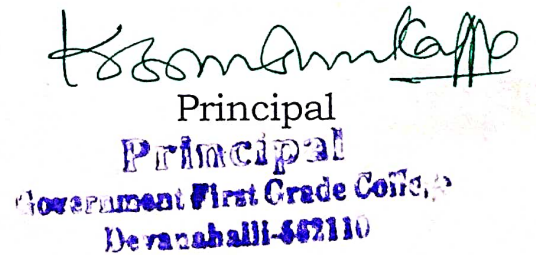 Principal
Principal
Government First Grade College
Devanahalli-562110